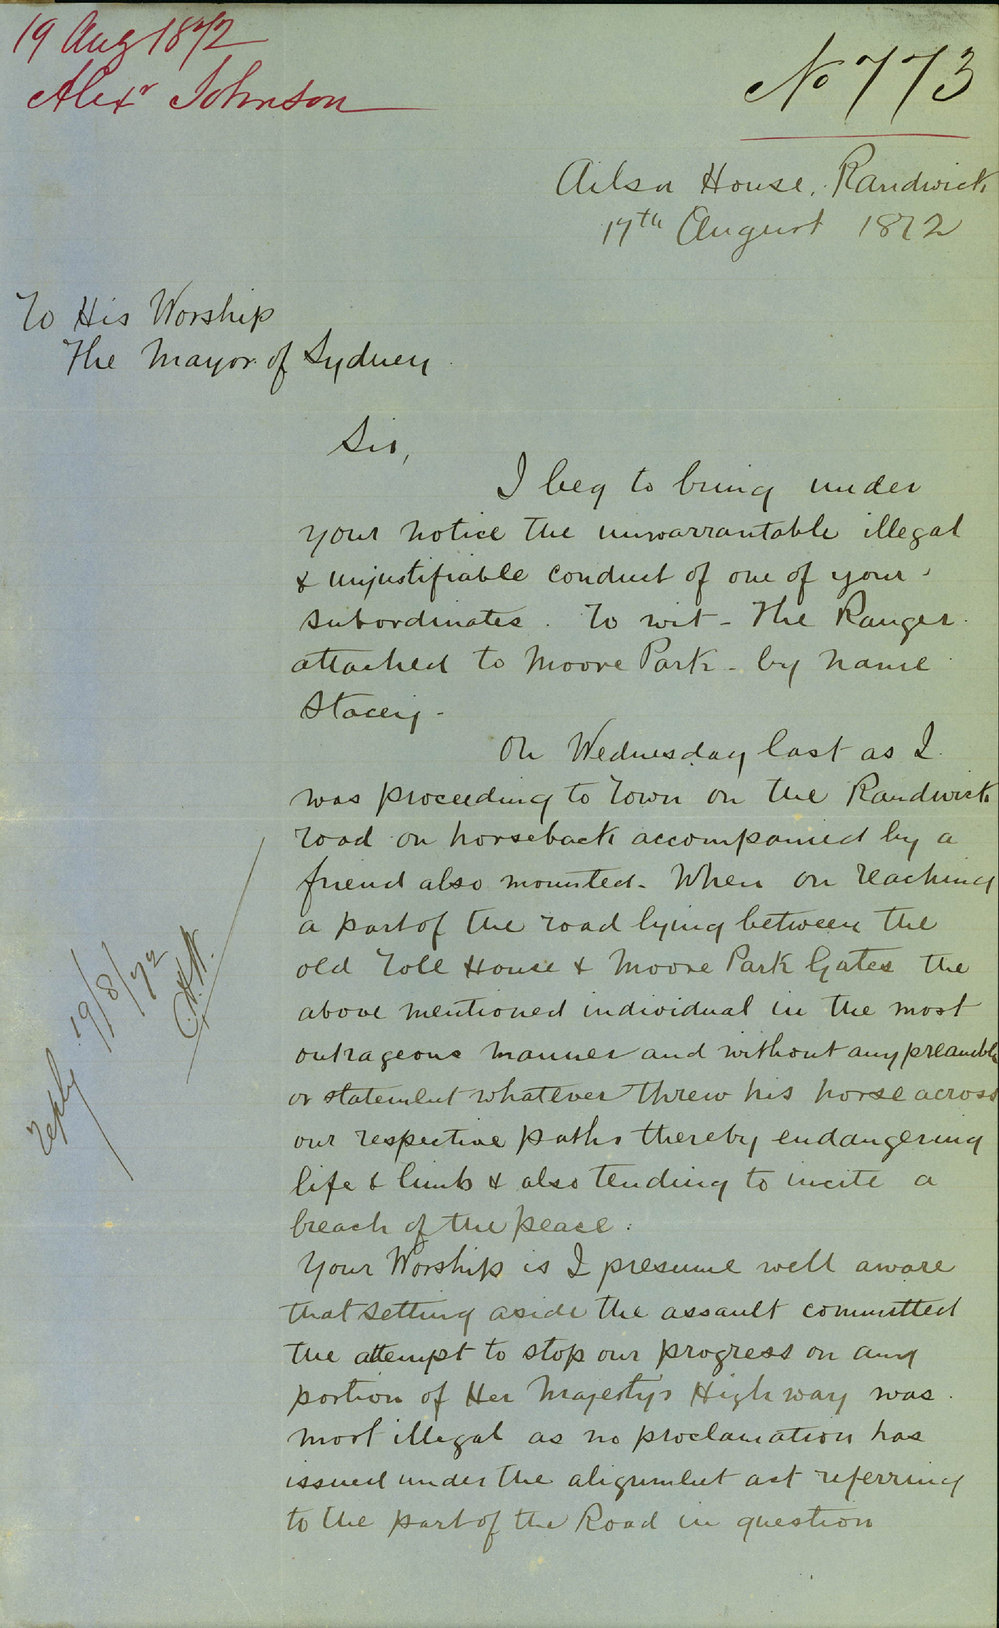 19 Aug 1872
Alexr Johnson
No 773
Ailsa House, Randwick
17th August 1872
To His Worship
The Mayor of Sydney
Sir,
I beg to bring under
your notice the unwarrantable illegal
& unjustifiable conduct of one of your
subordinates. To wit - The Ranger
attached to Moore Park - by name
Stacey -
On Wednesday last as I
was proceeding to Town on the Randwick
road on horseback accompanied by a
friend also mounted - When on reaching
a part of the road lying between the
old Toll House & Moore Park Gates the
above mentioned individual in the most
outrageous manner and without any preamble
or statement whatever threw his horse across
our respective paths thereby endangering
life & limb & also tending to incite a
breach of the peace.
Your Worship is I presume well aware
that setting aside the assault committed
the attempt to stop our progress on any
portion of Her Majestys High way was
most illegal as no proclamation has
issued under the alignment act referring
to the part of the Road in question
reply 19/8/72
C.H.W.